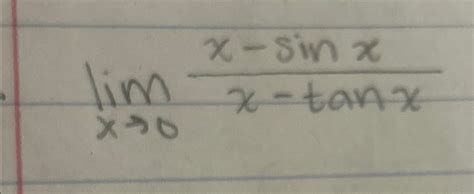 lim x→0 (x - sin x)/(x - tan x)